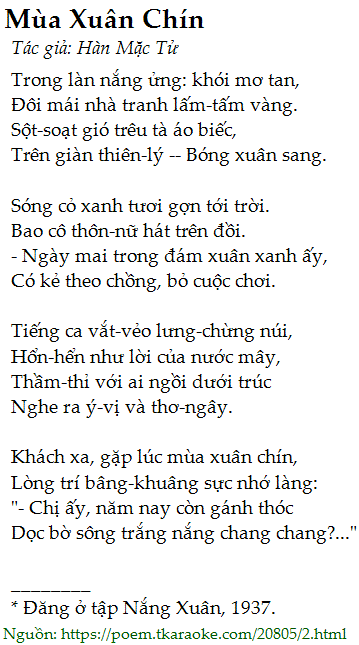 Mùa Xuân Chín
Tác giả: Hàn Mặc Tử
Trong làn nắng ửng: khói mơ tan,
Đôi mái nhà tranh lấm-tấm vàng.
Sột-soạt gió trêu tà áo biếc,
Trên giàn thiên-lý -- Bóng xuân sang.
Sóng cỏ xanh tươi gợn tới trời.
Bao cô thôn-nữ hát trên đồi.
- Ngày mai trong đám xuân xanh ấy,
Có kẻ theo chồng, bỏ cuộc chơi.
Tiếng ca vắt-vẻo lưng-chừng núi,
Hổn-hển như lời của nước mây,
Thầm-thỉ với ai ngồi dưới trúc
Nghe ra ý-vị và thơ-ngây.
Khách xa, gặp lúc mùa xuân chín,
Lòng trí bâng-khuâng sực nhớ làng:
"- Chị ấy, năm nay còn gánh thóc
Dọc bờ sông trắng nắng chang chang?..."
________
* Đăng ở tập Nắng Xuân, 1937.
Nguồn: https://poem.tkaraoke.com/20805/2.html